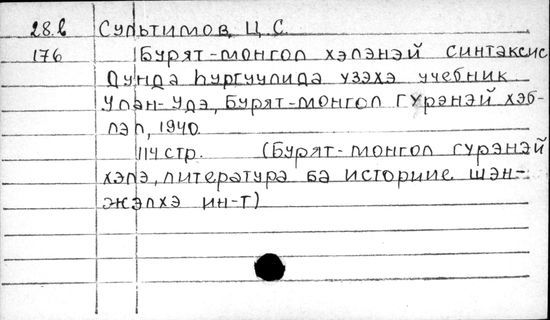 28.в Сультимов, Ц. С.
176 Бурят-монгол хэлэнэй синтаксис
Дунда һургуулида үзэхэ учебник
Улан-Удэ, Бурят-монгол гүрэнэй хэб-
лэл, 1940.
114 стр. (Бурят-монгол гүрэнэй
хэлэ, литература ба историие шэн-
жэлхэ ин-т)